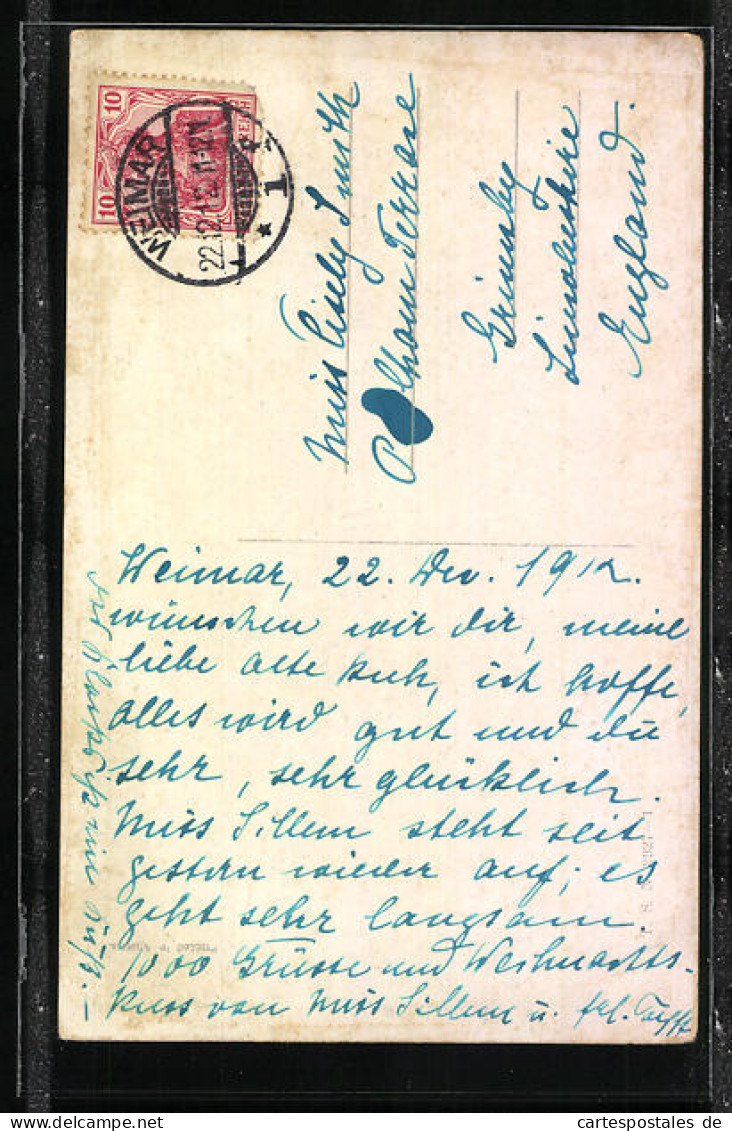 10
10
WEIMAR
22.12.12. 11-12V.
* 1
Miss Cicely Smith
Pelham Terrace
Grimsby
Lincolnshire
England.
Weimar, 22. Dez. 1912.
wünschen wir dir, meine
liebe alte Kuh, ich hoffe,
alles wird gut und du
sehr, sehr glücklich.
Miss Sillem steht seit
gestern wieder auf; es
geht sehr langsam.
1000 Grüsse und Weihnachts-
kuss von Miss Sillem u. frl.
cartespostales de
cartespostales.de